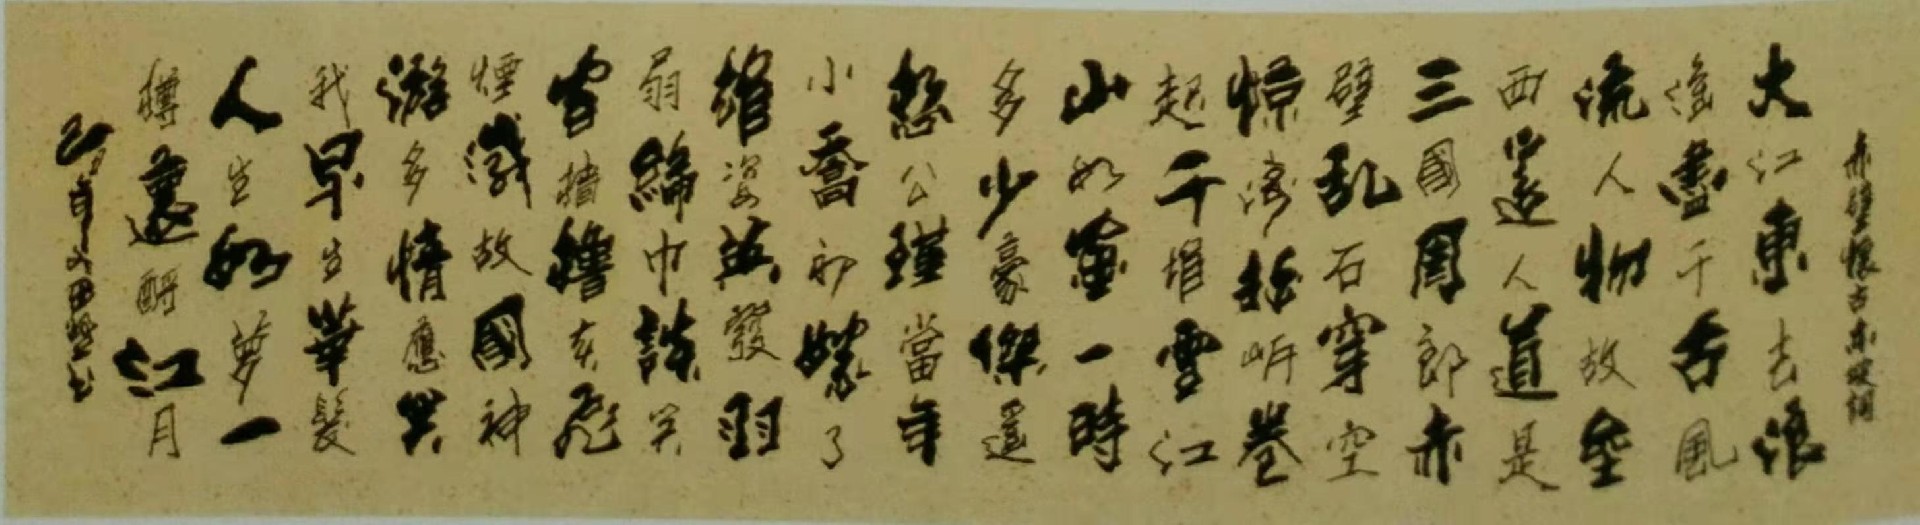 赤壁懷古東坡詞
大江東去浪
淘盡千古風
流人物故垒
西邊人道是
三國周郎赤
壁乱石穿空
惊涛拍岍卷
起千堆雪江
山如畫一時
多少豪傑遥
想公瑾當年
小喬初嫁了
雄姿英發羽
扇綸巾談笑
間檣櫓灰飛
煙滅故國神
游多情應笑
我早生華髮
人生如夢一
樽還酹江月